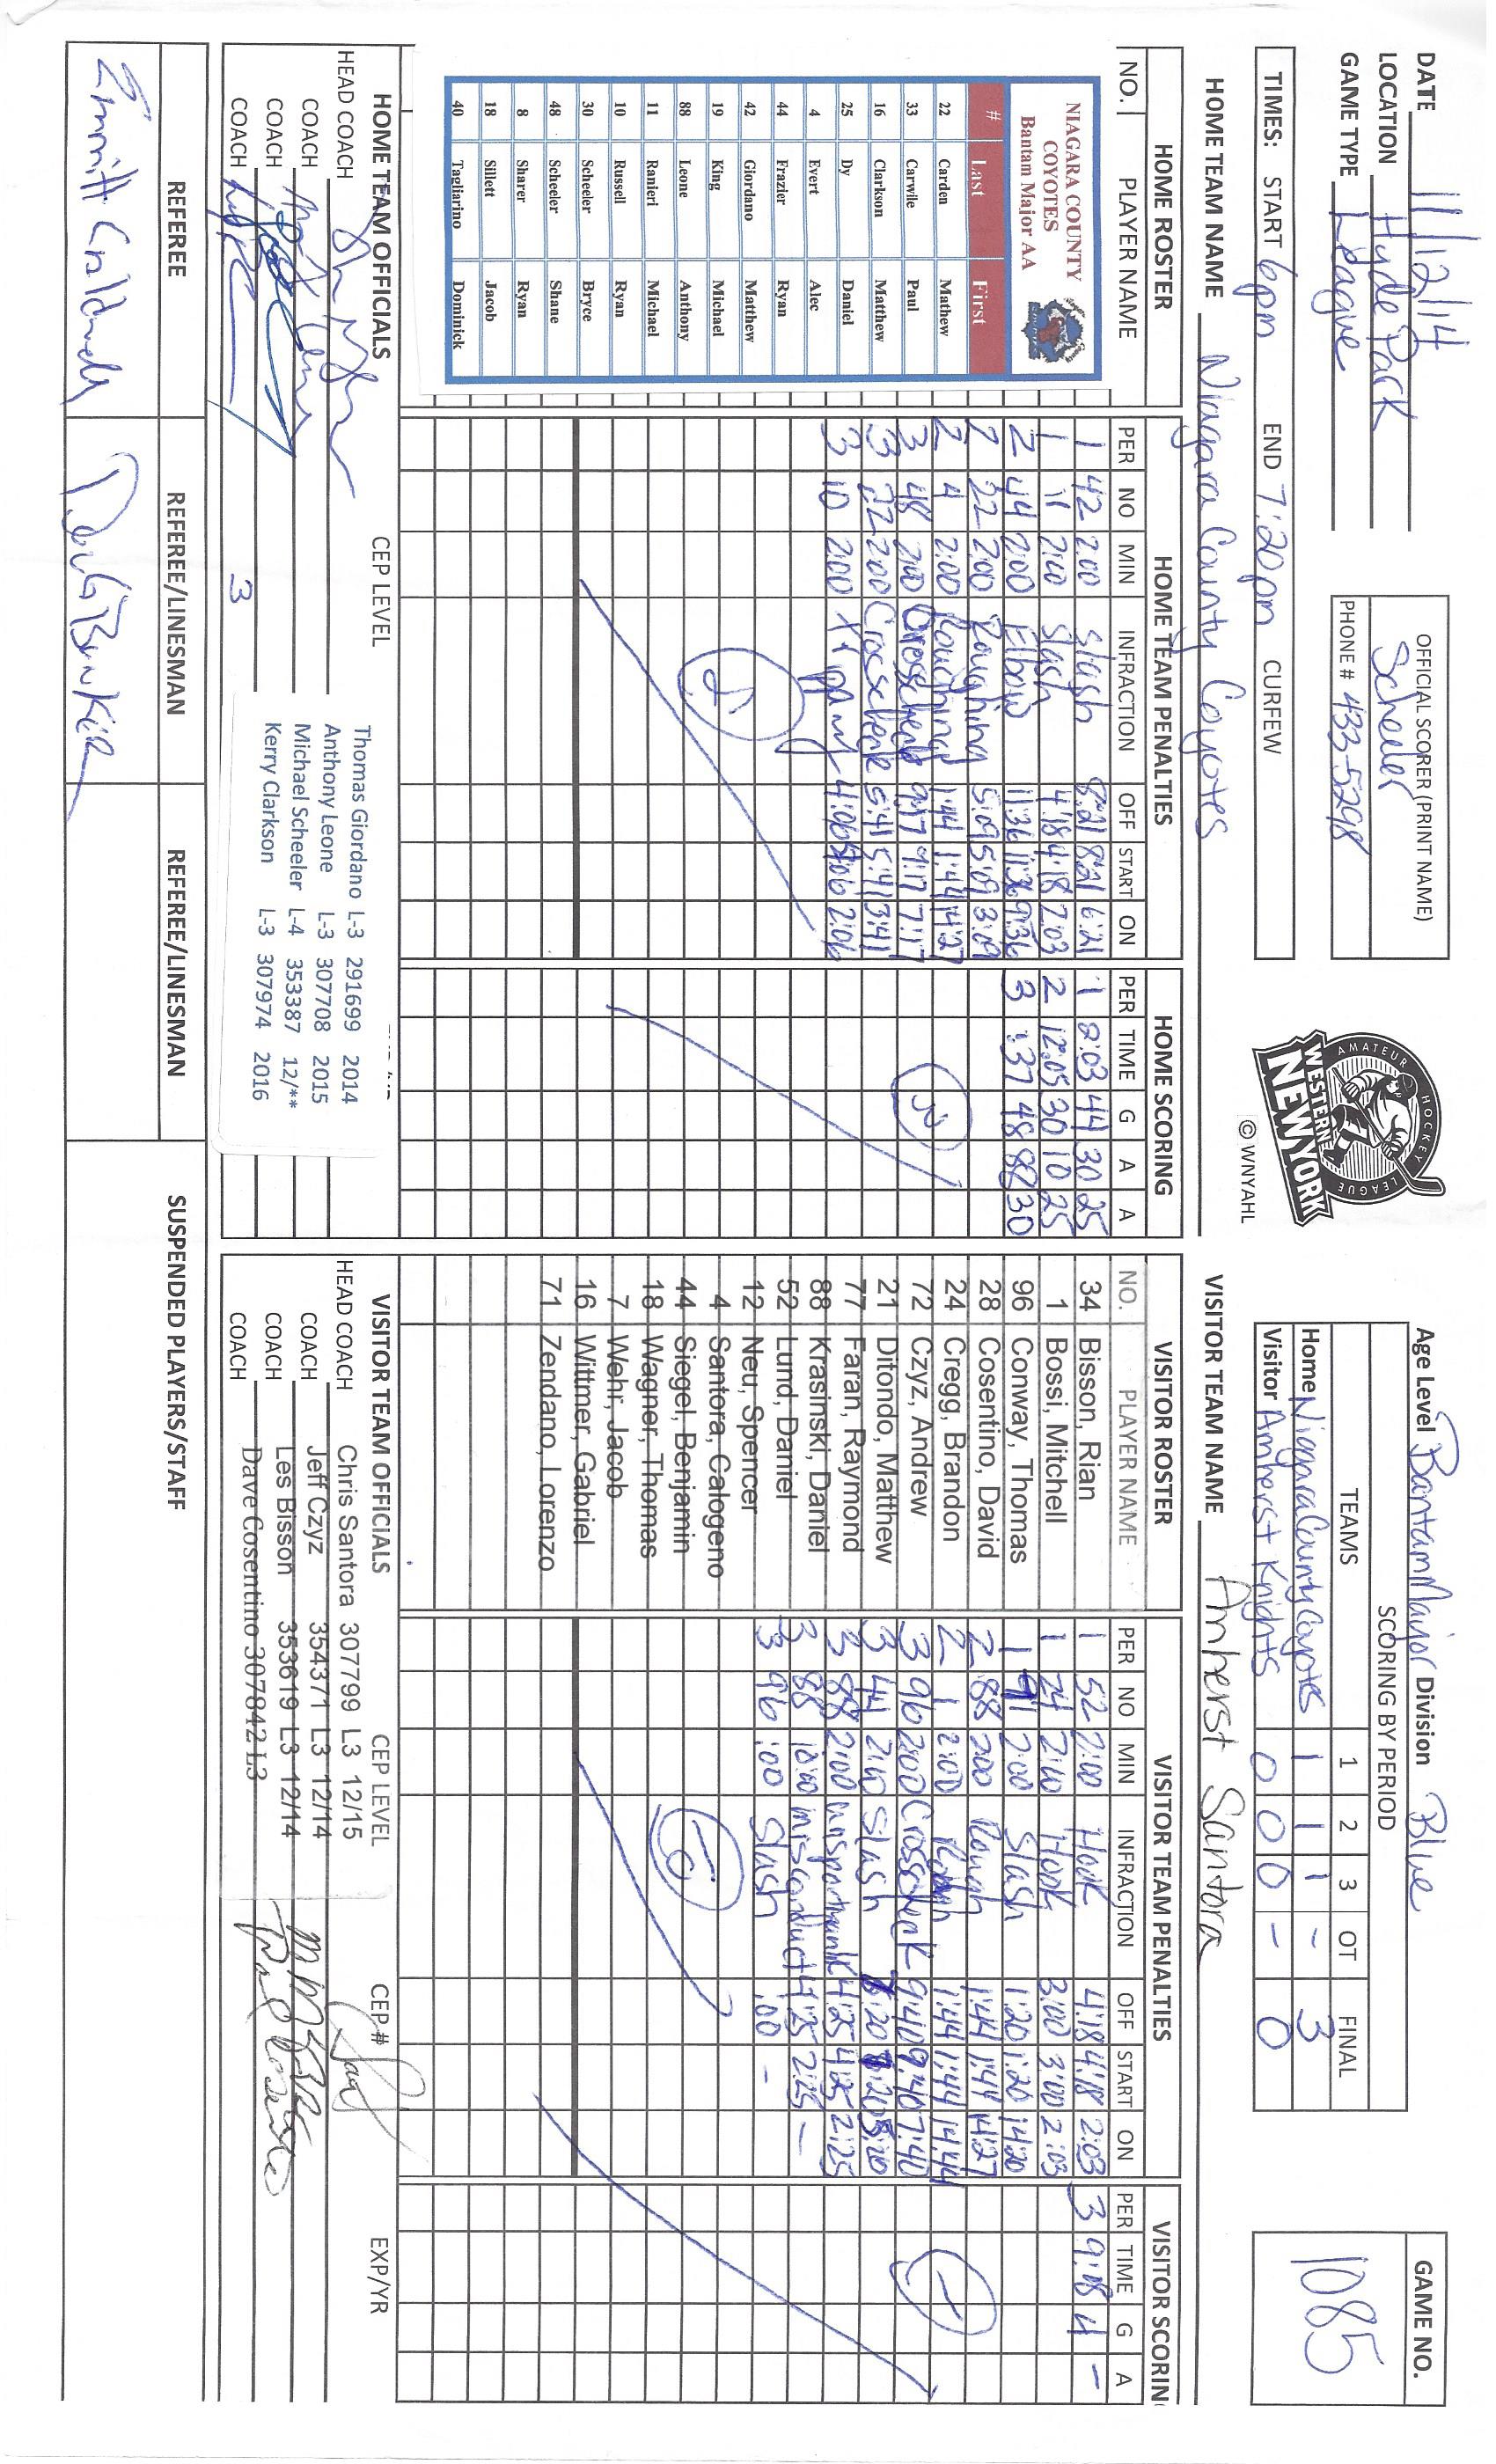 DATE 11/12/14
LOCATION Hyde Park
GAME TYPE League
OFFICIAL SCORER (PRINT NAME)
Scheeler
PHONE # 433-5298
AMATEUR HOCKEY LEAGUE
WESTERN NEW YORK
© WNYAHL
Age Level Bantam Major Division Blue
SCORING BY PERIOD
TEAMS 1 2 3 OT FINAL
Home Niagara County Coyotes 1 1 1 - 3
Visitor Amherst Knights 0 0 0 - 0
GAME NO.
1085
TIMES: START 6pm END 7:20pm CURFEW
HOME TEAM NAME Niagara County Coyotes
VISITOR TEAM NAME Amherst Santora
HOME ROSTER
NO. PLAYER NAME
NIAGARA COUNTY
COYOTES
Bantam Major AA
# Last First
22 Carden Mathew
33 Carwile Paul
16 Clarkson Matthew
25 Dy Daniel
4 Evert Alec
44 Frazier Ryan
42 Giordano Matthew
19 King Michael
88 Leone Anthony
11 Ranieri Michael
10 Russell Ryan
30 Scheeler Bryce
48 Scheeler Shane
8 Sharer Ryan
18 Sillett Jacob
40 Tagliarino Dominick
HOME TEAM PENALTIES
PER NO MIN INFRACTION OFF START ON
1 42 2:00 Slash 8:21 8:21 6:21
1 11 2:00 Slash 4:18 4:18 2:03
2 44 2:00 Elbow 11:36 11:36 9:36
2 22 2:00 Roughing 5:09 5:09 3:09
2 4 2:00 Roughing 1:44 1:44 14:27
3 48 2:00 Crosscheck 9:17 9:17 7:17
3 22 2:00 Crosscheck 5:41 5:41 3:41
3 10 2:00 4:06 4:06 2:06
8
HOME SCORING
PER TIME G A A
1 2:03 44 30 25
2 12:05 30 10 25
3 :37 48 88 30
3
VISITOR ROSTER
NO. PLAYER NAME
34 Bisson, Rian
1 Bossi, Mitchell
96 Conway, Thomas
28 Cosentino, David
24 Cregg, Brandon
72 Czyz, Andrew
21 Ditondo, Matthew
77 Faran, Raymond
88 Krasinski, Daniel
52 Lund, Daniel
12 Neu, Spencer
4 Santora, Calogeno
44 Siegel, Benjamin
18 Wagner, Thomas
7 Wehr, Jacob
16 Wittmer, Gabriel
71 Zendano, Lorenzo
VISITOR TEAM PENALTIES
PER NO MIN INFRACTION OFF START ON
1 52 2:00 Hook 4:18 4:18 2:03
1 24 2:00 Hook 3:00 3:00 2:03
1 2:00 Slash 1:20 1:20 14:20
2 88 2:00 Rough 1:44 1:44 14:27
2 1 2:00 Rough 1:44 1:44 14:44
3 96 2:00 Crosscheck 9:40 9:40 7:40
3 44 2:00 Slash
3 88 2:00 4:25 4:25 2:25
3 88 10:00 misconduct 4:25 2:25 -
3 96 :00 Slash :00 -
10
VISITOR SCORIN
PER TIME G A
3 9:08 4 -
1
HOME TEAM OFFICIALS CEP LEVEL
HEAD COACH
COACH
COACH
COACH 3
Thomas Giordano L-3 291699 2014
Anthony Leone L-3 307708 2015
Michael Scheeler L-4 353387 12/**
Kerry Clarkson L-3 307974 2016
VISITOR TEAM OFFICIALS CEP LEVEL CEP # EXP/YR
HEAD COACH Chris Santora 307799 L3 12/15
COACH Jeff Czyz 354371 L3 12/14
COACH Les Bisson 353619 L3 12/14
COACH Dave Cosentino 307842 L3
REFEREE REFEREE/LINESMAN REFEREE/LINESMAN SUSPENDED PLAYERS/STAFF